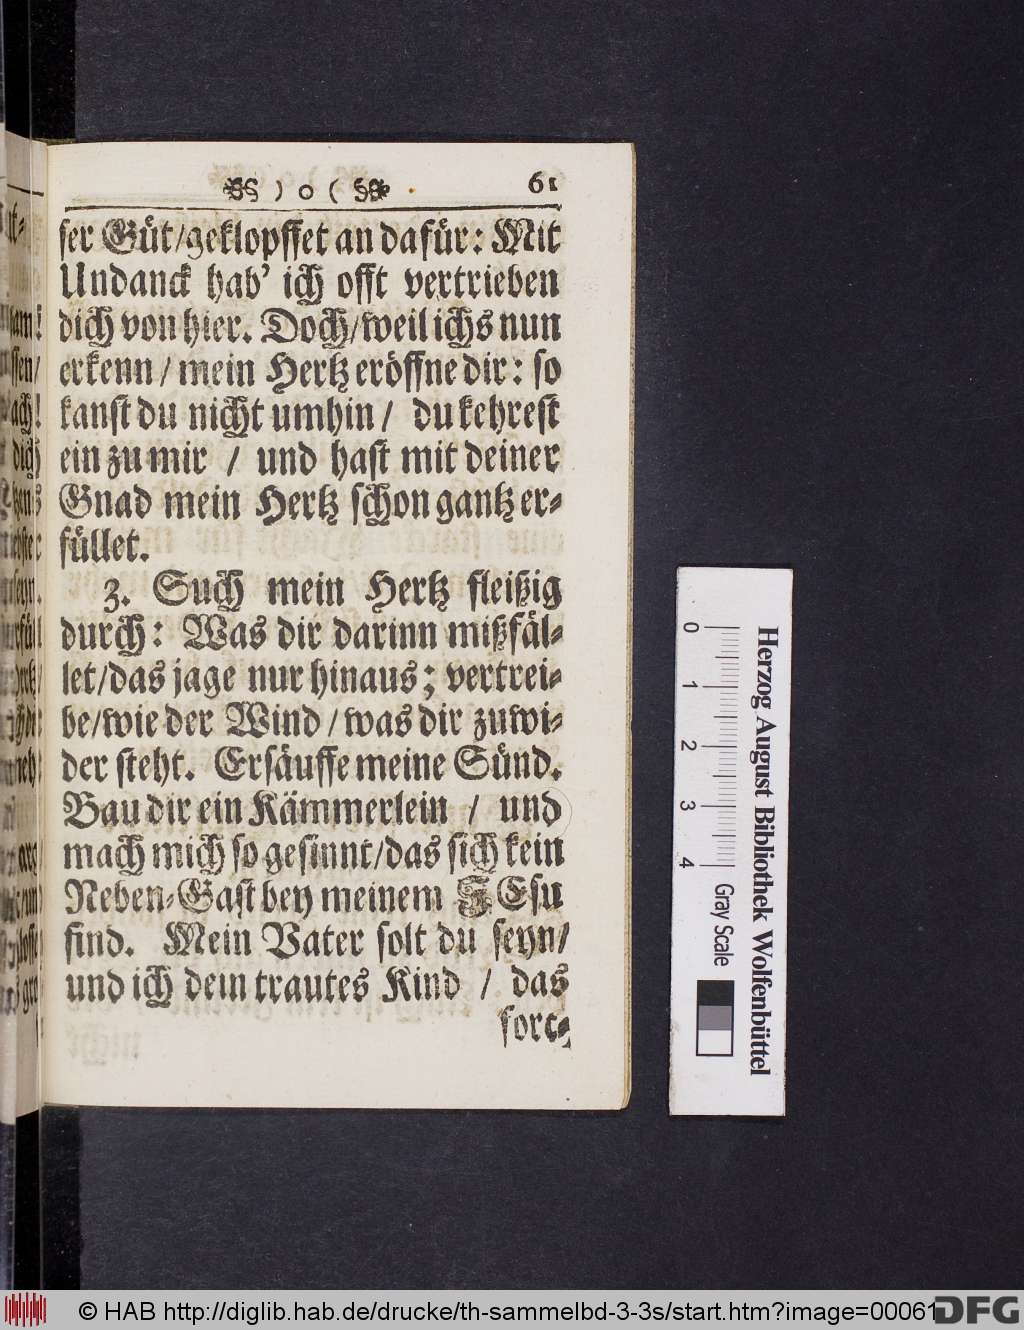 ) o ( 61
ser Güt/geklopffet an dafür: Mit
Undanck hab' ich offt vertrieben
dich von hier. Doch/weil ichs nun
erkenn / mein Hertz eröffne dir: so
kanst du nicht umhin / du kehrest
ein zu mir / und hast mit deiner
Gnad mein Hertz schon gantz er-
füllet.
3. Such mein Hertz fleißig
durch: Was dir darinn mißfäl-
let/das jage nur hinaus; vertrei-
be/wie der Wind / was dir zuwi-
der steht. Ersäuffe meine Sünd.
Bau dir ein Kämmerlein / und
mach mich so gesinnt/das sich kein
Neben-Gast bey meinem JEsu
find. Mein Vater solt du seyn/
und ich dein trautes Kind / das
fort-
Herzog August Bibliothek Wolfenbüttel
0 1 2 3 4 Gray Scale
© HAB http://diglib.hab.de/drucke/th-sammelbd-3-3s/start.htm?image=00061
DFG